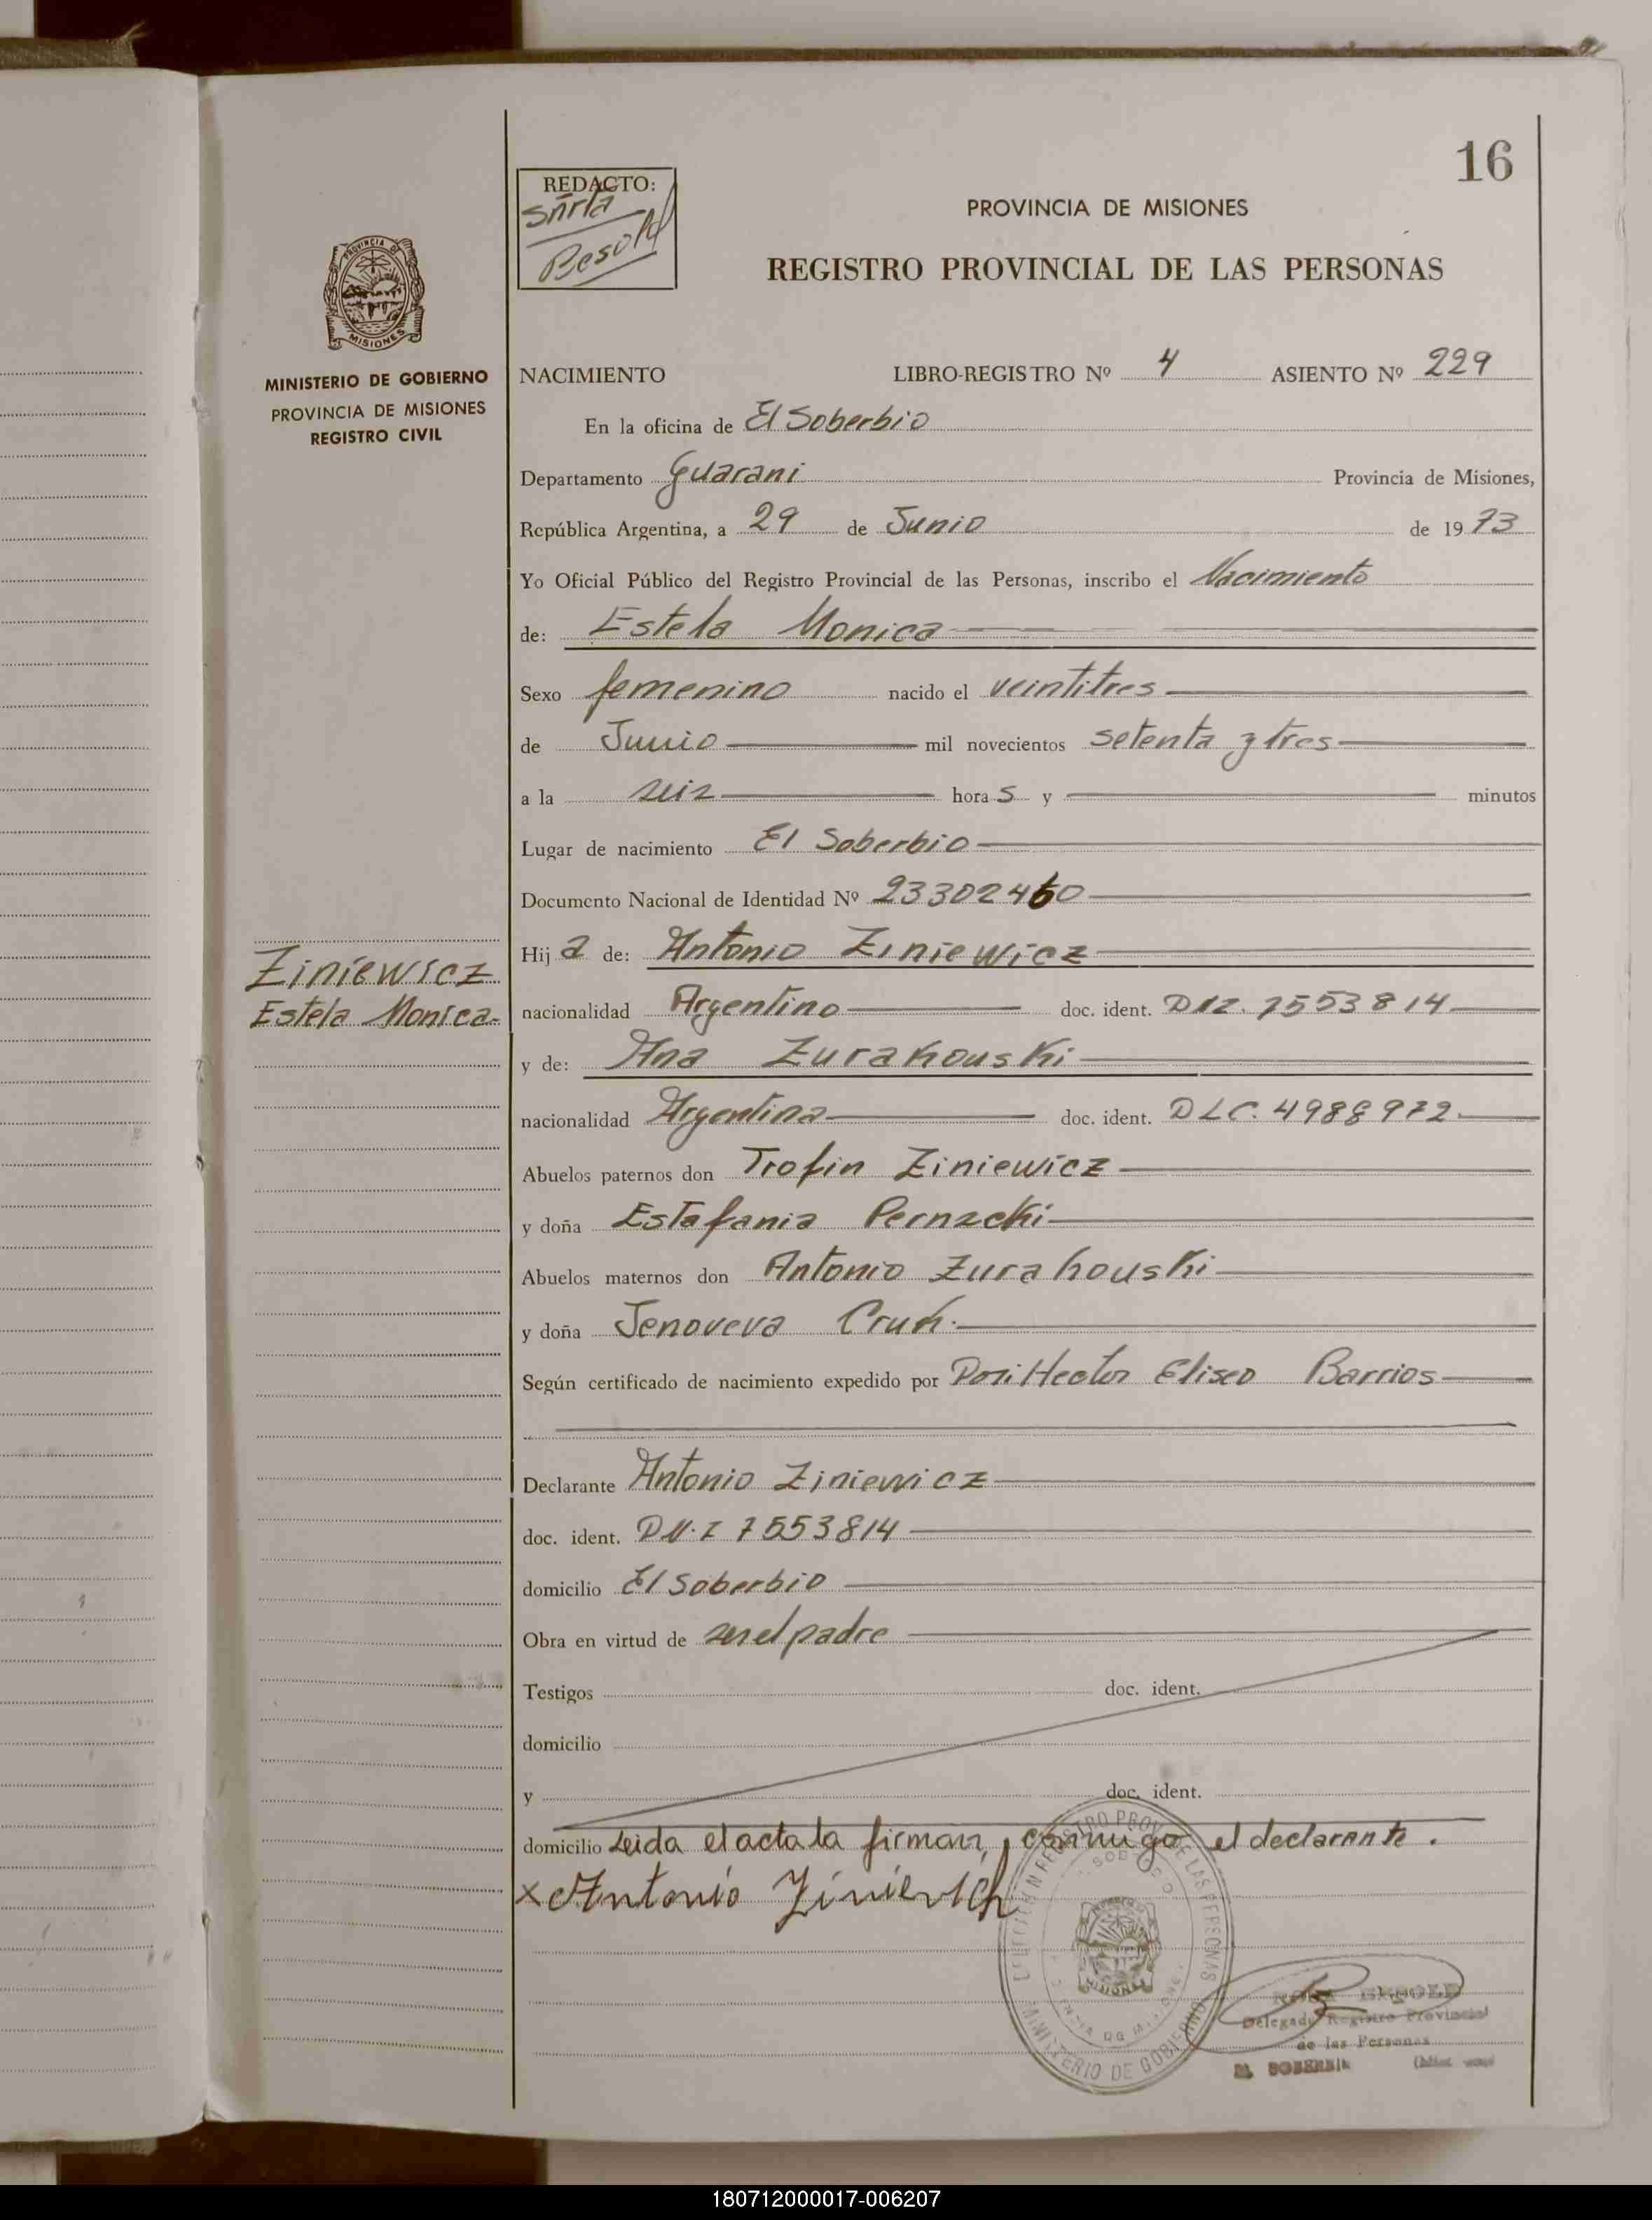 16
REDACTO:
Sñrta
PROVINCIA DE MISIONES
REGISTRO PROVINCIAL DE LAS PERSONAS
PROVINCIA DE
MISIONES
MINISTERIO DE GOBIERNO
PROVINCIA DE MISIONES
REGISTRO CIVIL
NACIMIENTO LIBRO-REGISTRO Nº 4 ASIENTO Nº 229
En la oficina de El Soberbio
Departamento Guarani Provincia de Misiones,
República Argentina, a 29 de Junio de 1973
Yo Oficial Público del Registro Provincial de las Personas, inscribo el Nacimiento
de: Estela Monica
Sexo femenino nacido el veintitres
de Junio mil novecientos setenta y tres
a la seis horas y minutos
Lugar de nacimiento El Soberbio
Documento Nacional de Identidad Nº 23302460
Ziniewicz
Estela Monica-
Hija de: Antonio Ziniewicz
nacionalidad Argentino doc. ident. DNI. 7553814
y de: Ana Zurakouski
nacionalidad Argentina doc. ident. DLC. 4988972
Abuelos paternos don Trofin Ziniewicz
y doña Estafania Pernacki
Abuelos maternos don Antonio Zurakouski
y doña Jenoveva Cruk.
Según certificado de nacimiento expedido por Hector Eliseo Barrios
Declarante Antonio Ziniewicz
doc. ident. DN.I 7553814
domicilio El Soberbio
Obra en virtud de ser el padre
Testigos doc. ident.
domicilio
y doc. ident.
domicilio Leida el acta la firman, conmigo el declarante.
x Antonio Ziniewich
MINISTERIO DE GOBIERNO
Delegada Registro Provincial
de las Personas
EL SOBERBIO
180712000017-006207